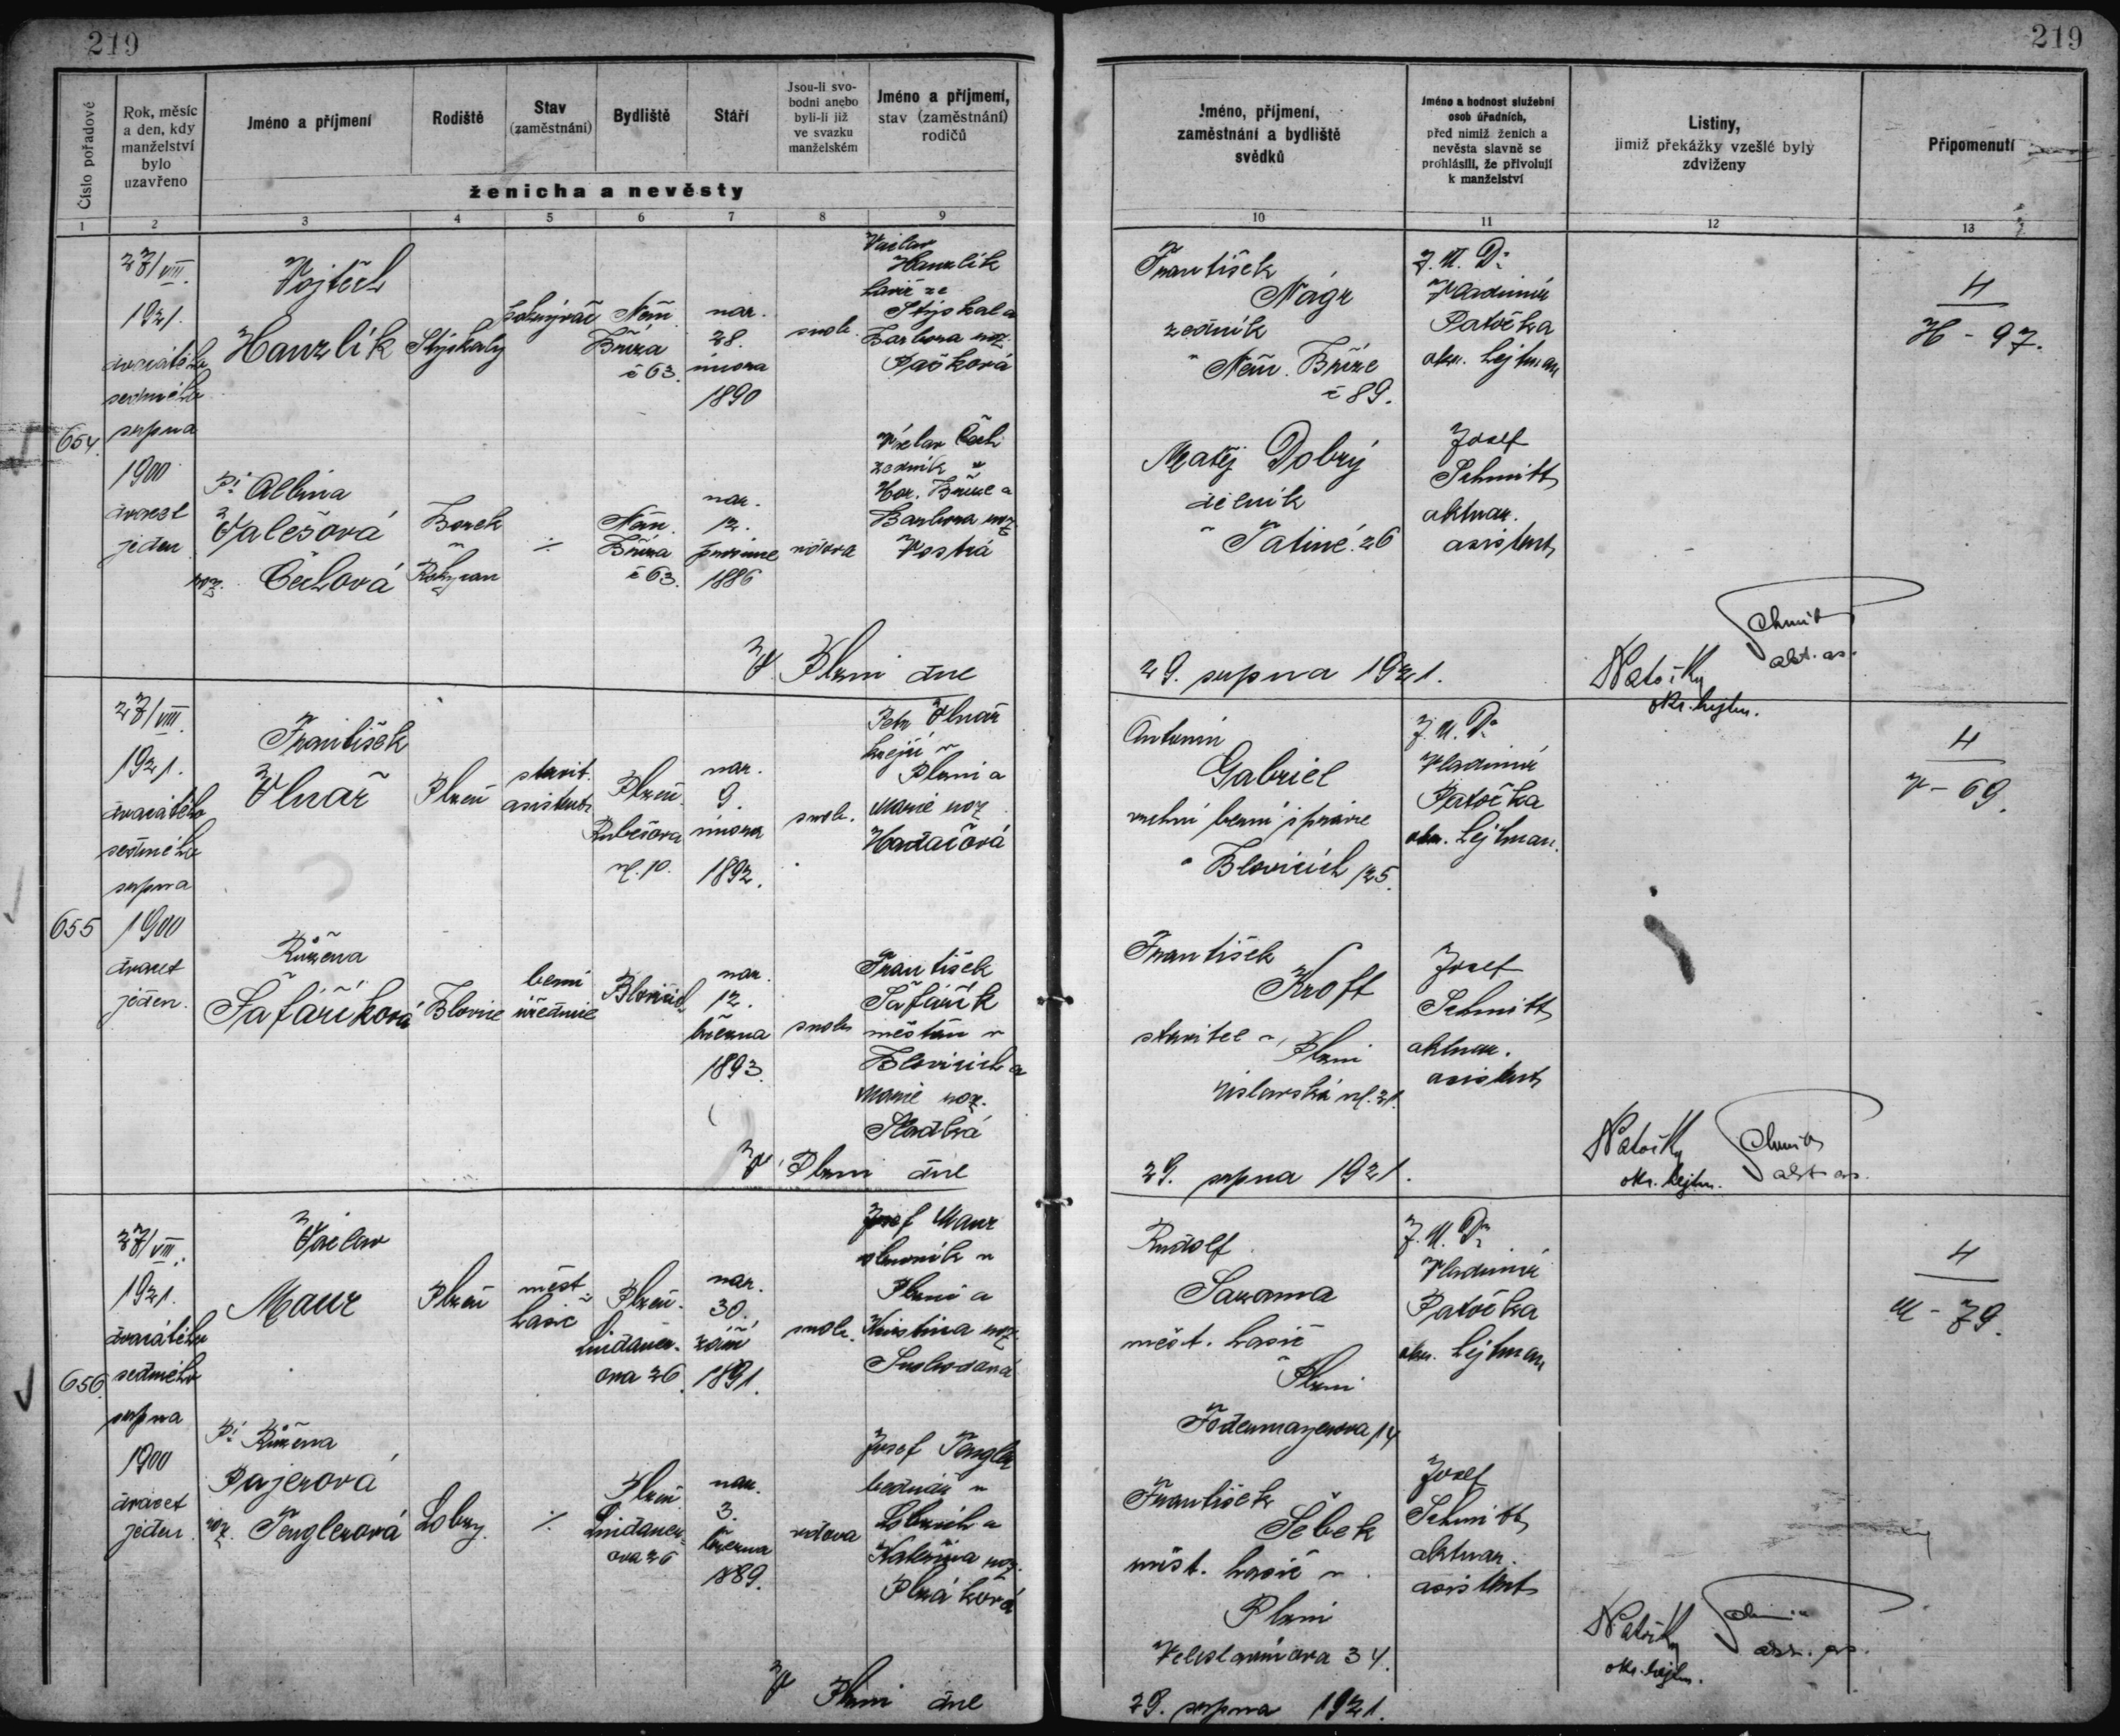 219
219
Číslo pořadové
Rok, měsíc
a den, kdy
manželství
bylo
uzavřeno
Jméno a příjmení
Rodiště
Stav
(zaměstnání)
Bydliště
Stáří
Jsou-li svo-
bodni anebo
byli-li již
ve svazku
manželském
Jméno a příjmení,
stav (zaměstnání)
rodičů
ženicha a nevěsty
Jméno, příjmení,
zaměstnání a bydliště
svědků
Jméno a hodnost služební
osob úřadních,
před nimiž ženich a
nevěsta slavně se
prohlásili, že přivolují
k manželství
Listiny,
jimiž překážky vzešlé byly
zdviženy
Připomenutí
1
2
3
4
5
6
7
8
9
10
11
12
13
654
27/VIII.
1921.
dvacátého
sedmého
srpna
1900
dvacet
jeden
Vojtěch
Hanzlík
Stýskaly
pokrývač
Něm.
Bříza
č 63.
nar.
28.
února
1890
svob.
Václav
Hanzlík
Stýskal a
Barbora roz.
Pašková
Pí Albina
Valešová
roz. Čechová
Borek
Rokycan
./.
Něm.
Bříza
č 63.
nar.
12.
prosince
1886
vdova
Václav Čech
zedník v
Hor. Bříze a
Barbora roz
Kostrá
František
Nágr
zedník
v Něm. Bříze
č 89.
Matěj Dobrý
dělník
v Tatiné. 26
J. U. Dr
Vladimír
Patočka
okr. hejtman
Josef
Schmitt
aktuar.
asistent
4
H - 97.
V Plzni dne
29. srpna 1921.
Patočka
okr. hejtm.
Schmitt
akt. as.
655
27/VIII.
1921.
dvacátého
sedmého
srpna
1900
dvacet
jeden.
František
Vlnař
Plzeň
stavit.
asistent
Plzeň.
Rubešova
ul. 10.
nar.
9.
února
1892.
svob.
Petr Vlnař
krejčí v
Plzni a
Marie roz
Hadačová
Růžena
Šafaříková
Blovice
berní
úřednice
nar.
12.
března
1893.
svob.
František
Šafařík
měšťan v
Blovicích a
Marie roz.
Sladká
Antonín
Gabriel
vrchní berní správce
v Blovicích 125.
František
Kroft
stavitel v Plzni
ul. 21.
J. U. Dr
Vladimír
Patočka
okr. hejtman.
Josef
Schmitt
aktuar.
asistent
4
V - 69.
V Plzni dne
29. srpna 1921.
Patočka
okr. hejtm.
Schmitt
akt. as.
656.
27/VIII.
1921.
dvacátého
sedmého
srpna
1900
dvacet
jeden.
Václav
Maur
Plzeň
měst.
hasič
Plzeň.
Lindauer-
ova 26.
nar.
30.
září
1891.
svob.
Josef Maur
v
Plzni a
Kristina roz.
Svobodová
Pí Růžena
Pajerová
roz. Tenglerová
Lobzy.
./.
Plzeň.
Lindauer-
ova 26
nar.
3.
března
1889.
vdova
Josef Tengler
bednář v
Lobzích a
Kateřina roz.
Plzáková
Rudolf
Sazama
měst. hasič
v Plzni
Fodermayerova 14
František
Šebek
měst. hasič v
Plzni
Veleslavínova 34.
J. U. Dr
Vladimír
Patočka
okr. hejtman
Josef
Schmitt
aktuar.
asistent
4
M - 79.
V Plzni dne
29. srpna 1921.
Patočka
okr. hejtm.